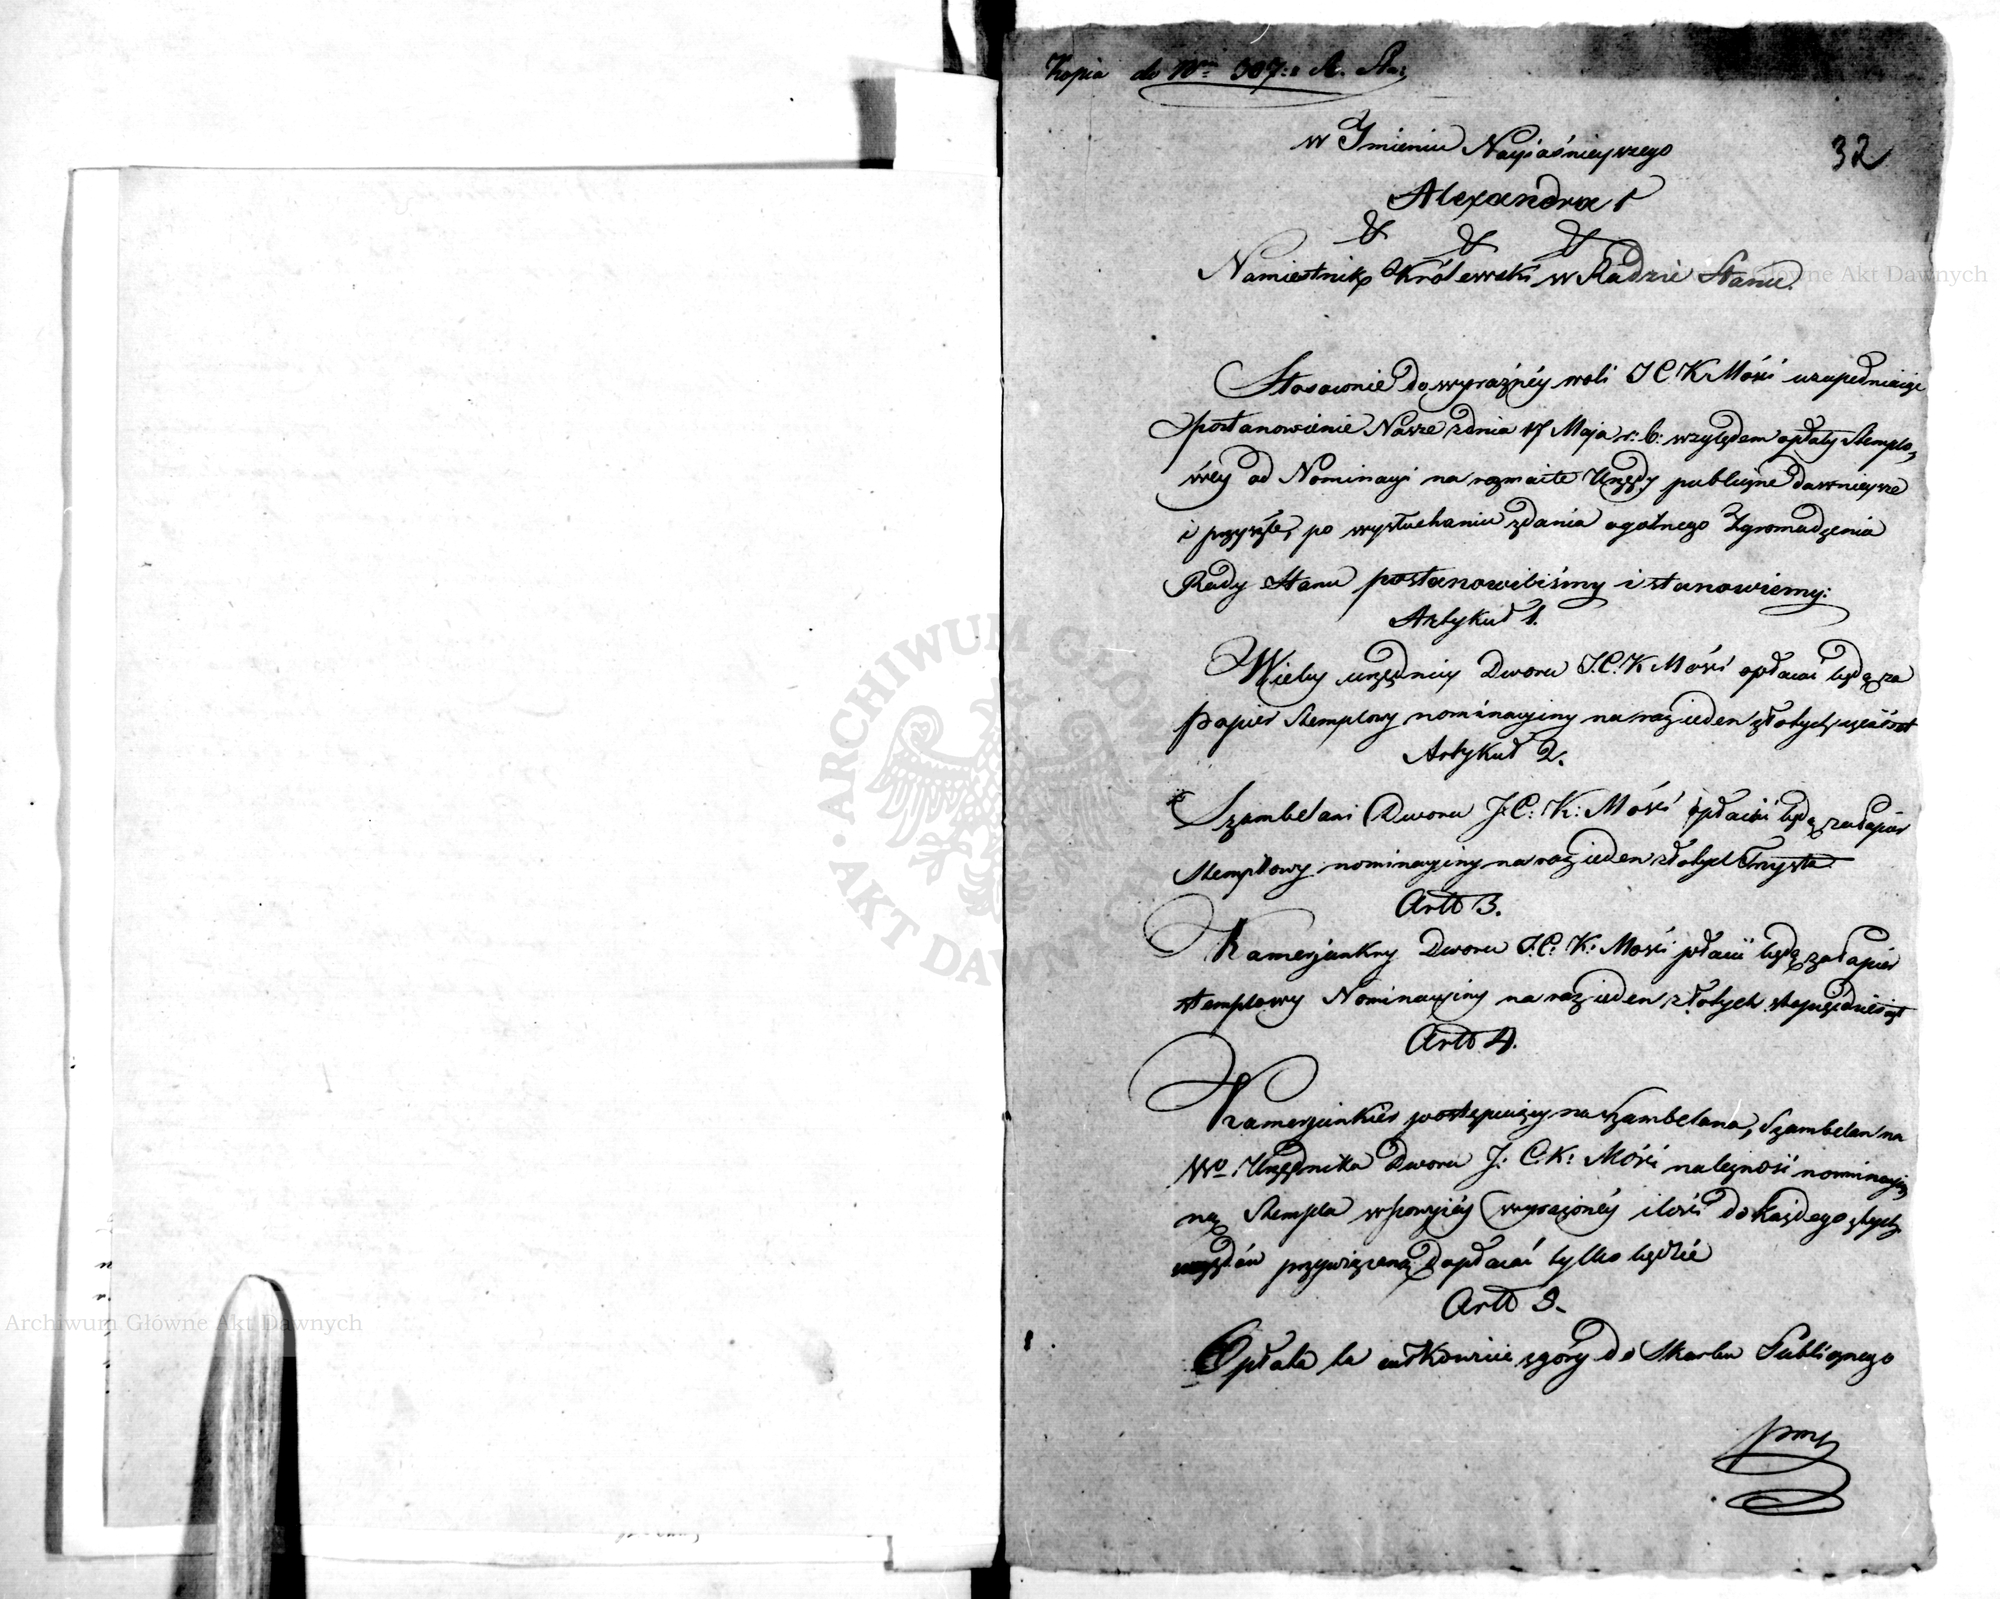 Kopia do Nru 307: A. Sta:
32
w Jmieniu Nayiaśnieyszego
Alexandra I
& & &
Namiestnik Królewski w Radzie Stanu.
Stosownie do wyraźnéy woli J C K Mości uzupełniaiąc
postanowienie Nasze z dnia 17 Maja r: b: względem opłaty Stemplo,
wéy od Nominacyi na rozmaite Urzędy publiczne dawnieysze
i przyszłe, po wysłuchaniu zdania ogolnego Zgromadzenia
Rady Stanu postanowiliśmy i stanowiemy:
Artykuł 1.
Wielcy urzędnicy Dworu J.C.K Mości opłacać będą za
papier Stemplowy nominacyiny na raz ieden złotych sześćset
Artykuł 2.
Szambelani Dworu J: C: K: Mości opłacać będą za Papier
Stemplowy nominacyiny na raz ieden złotych Trzysta
Artł 3.
Kamerjunkry Dworu J.C: K: Mości płacić będą za Papier
stemplowy Nominacyiny na raz ieden złotych stopięćdziesiąt
Artł 4.
Kamerjunkier postępuiący na Szambelana, Szambelan na
Wo Urzędnika Dworu J: C: K: Mości należność nominacyi,
ną Stempla w powyżéy wyrażonéy ilości do każdego z tych
urzędów przywiązaną dopłacać tylko będzie
Artł 5.
Opłata ta całkowicie z góry do Skarbu Publicznego
ARCHIWUM GŁÓWNE AKT DAWNYCH
Archiwum Główne Akt Dawnych
Główne Akt Dawnych